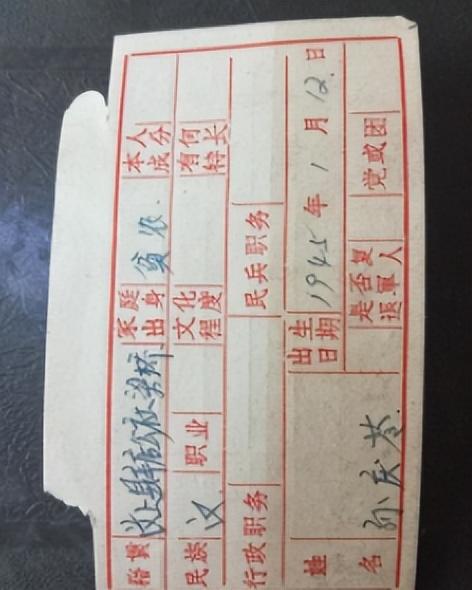 籍貫 汶上县 公社 家庭出身 贫农. 本人成分
民族 汉 职业 文化程度 有何特长
行政职务 民兵职务
姓名 孙庆苓. 出生日期 1945年1月12.日
是否复退軍人 党或团